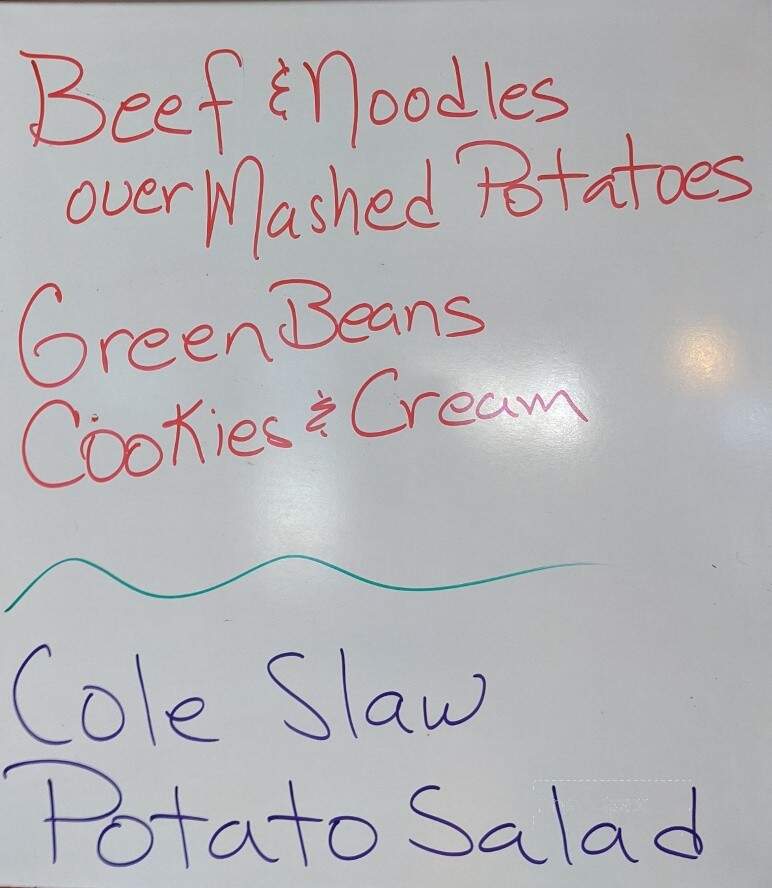 Beef & Noodles
over Mashed Potatoes
Green Beans
Cookies & Cream
Cole Slaw
Potato Salad